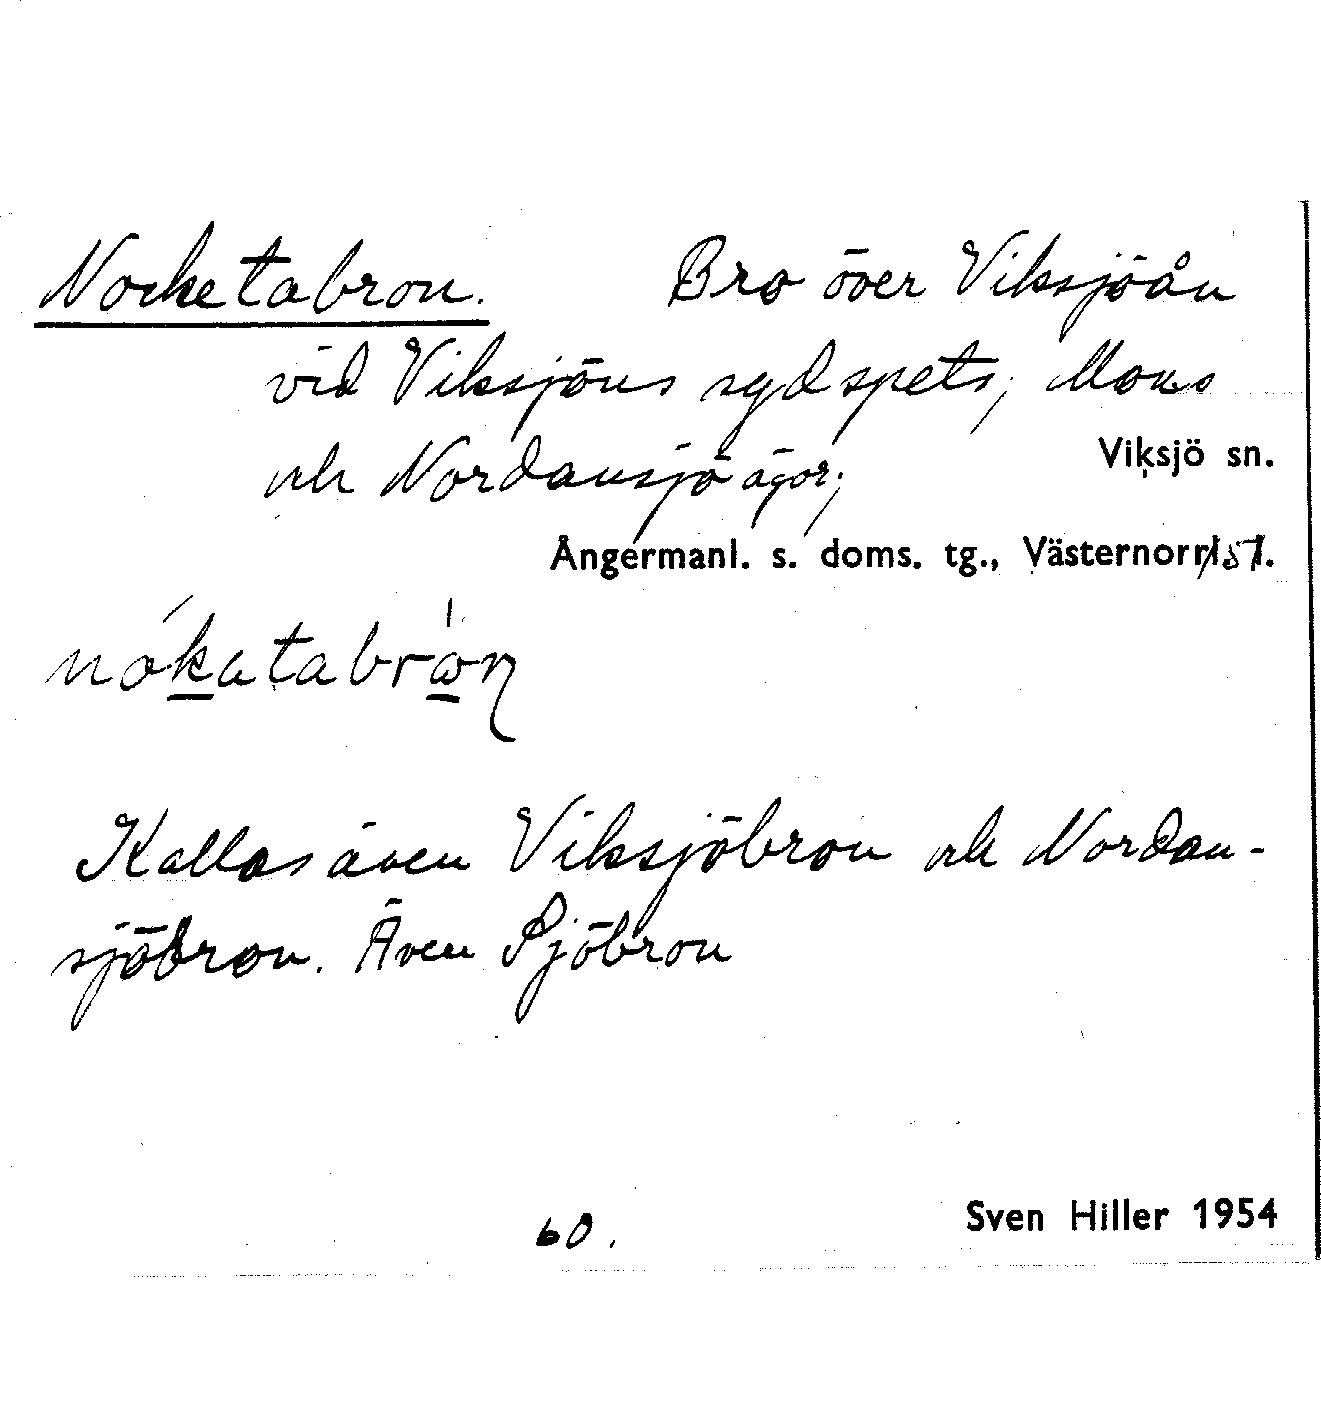 Nocketabron. Bro över Viksjöån
vid Viksjöns sydspets; Mons
och Nordansjö ägor;
Viksjö sn.
Ångermanl. s. doms. tg., Västernorrl. l.
nókatabrȧn
Kallas även Viksjöbron och Nordan-
sjöbron. Även Sjöbron
60.
Sven Hiller 1954